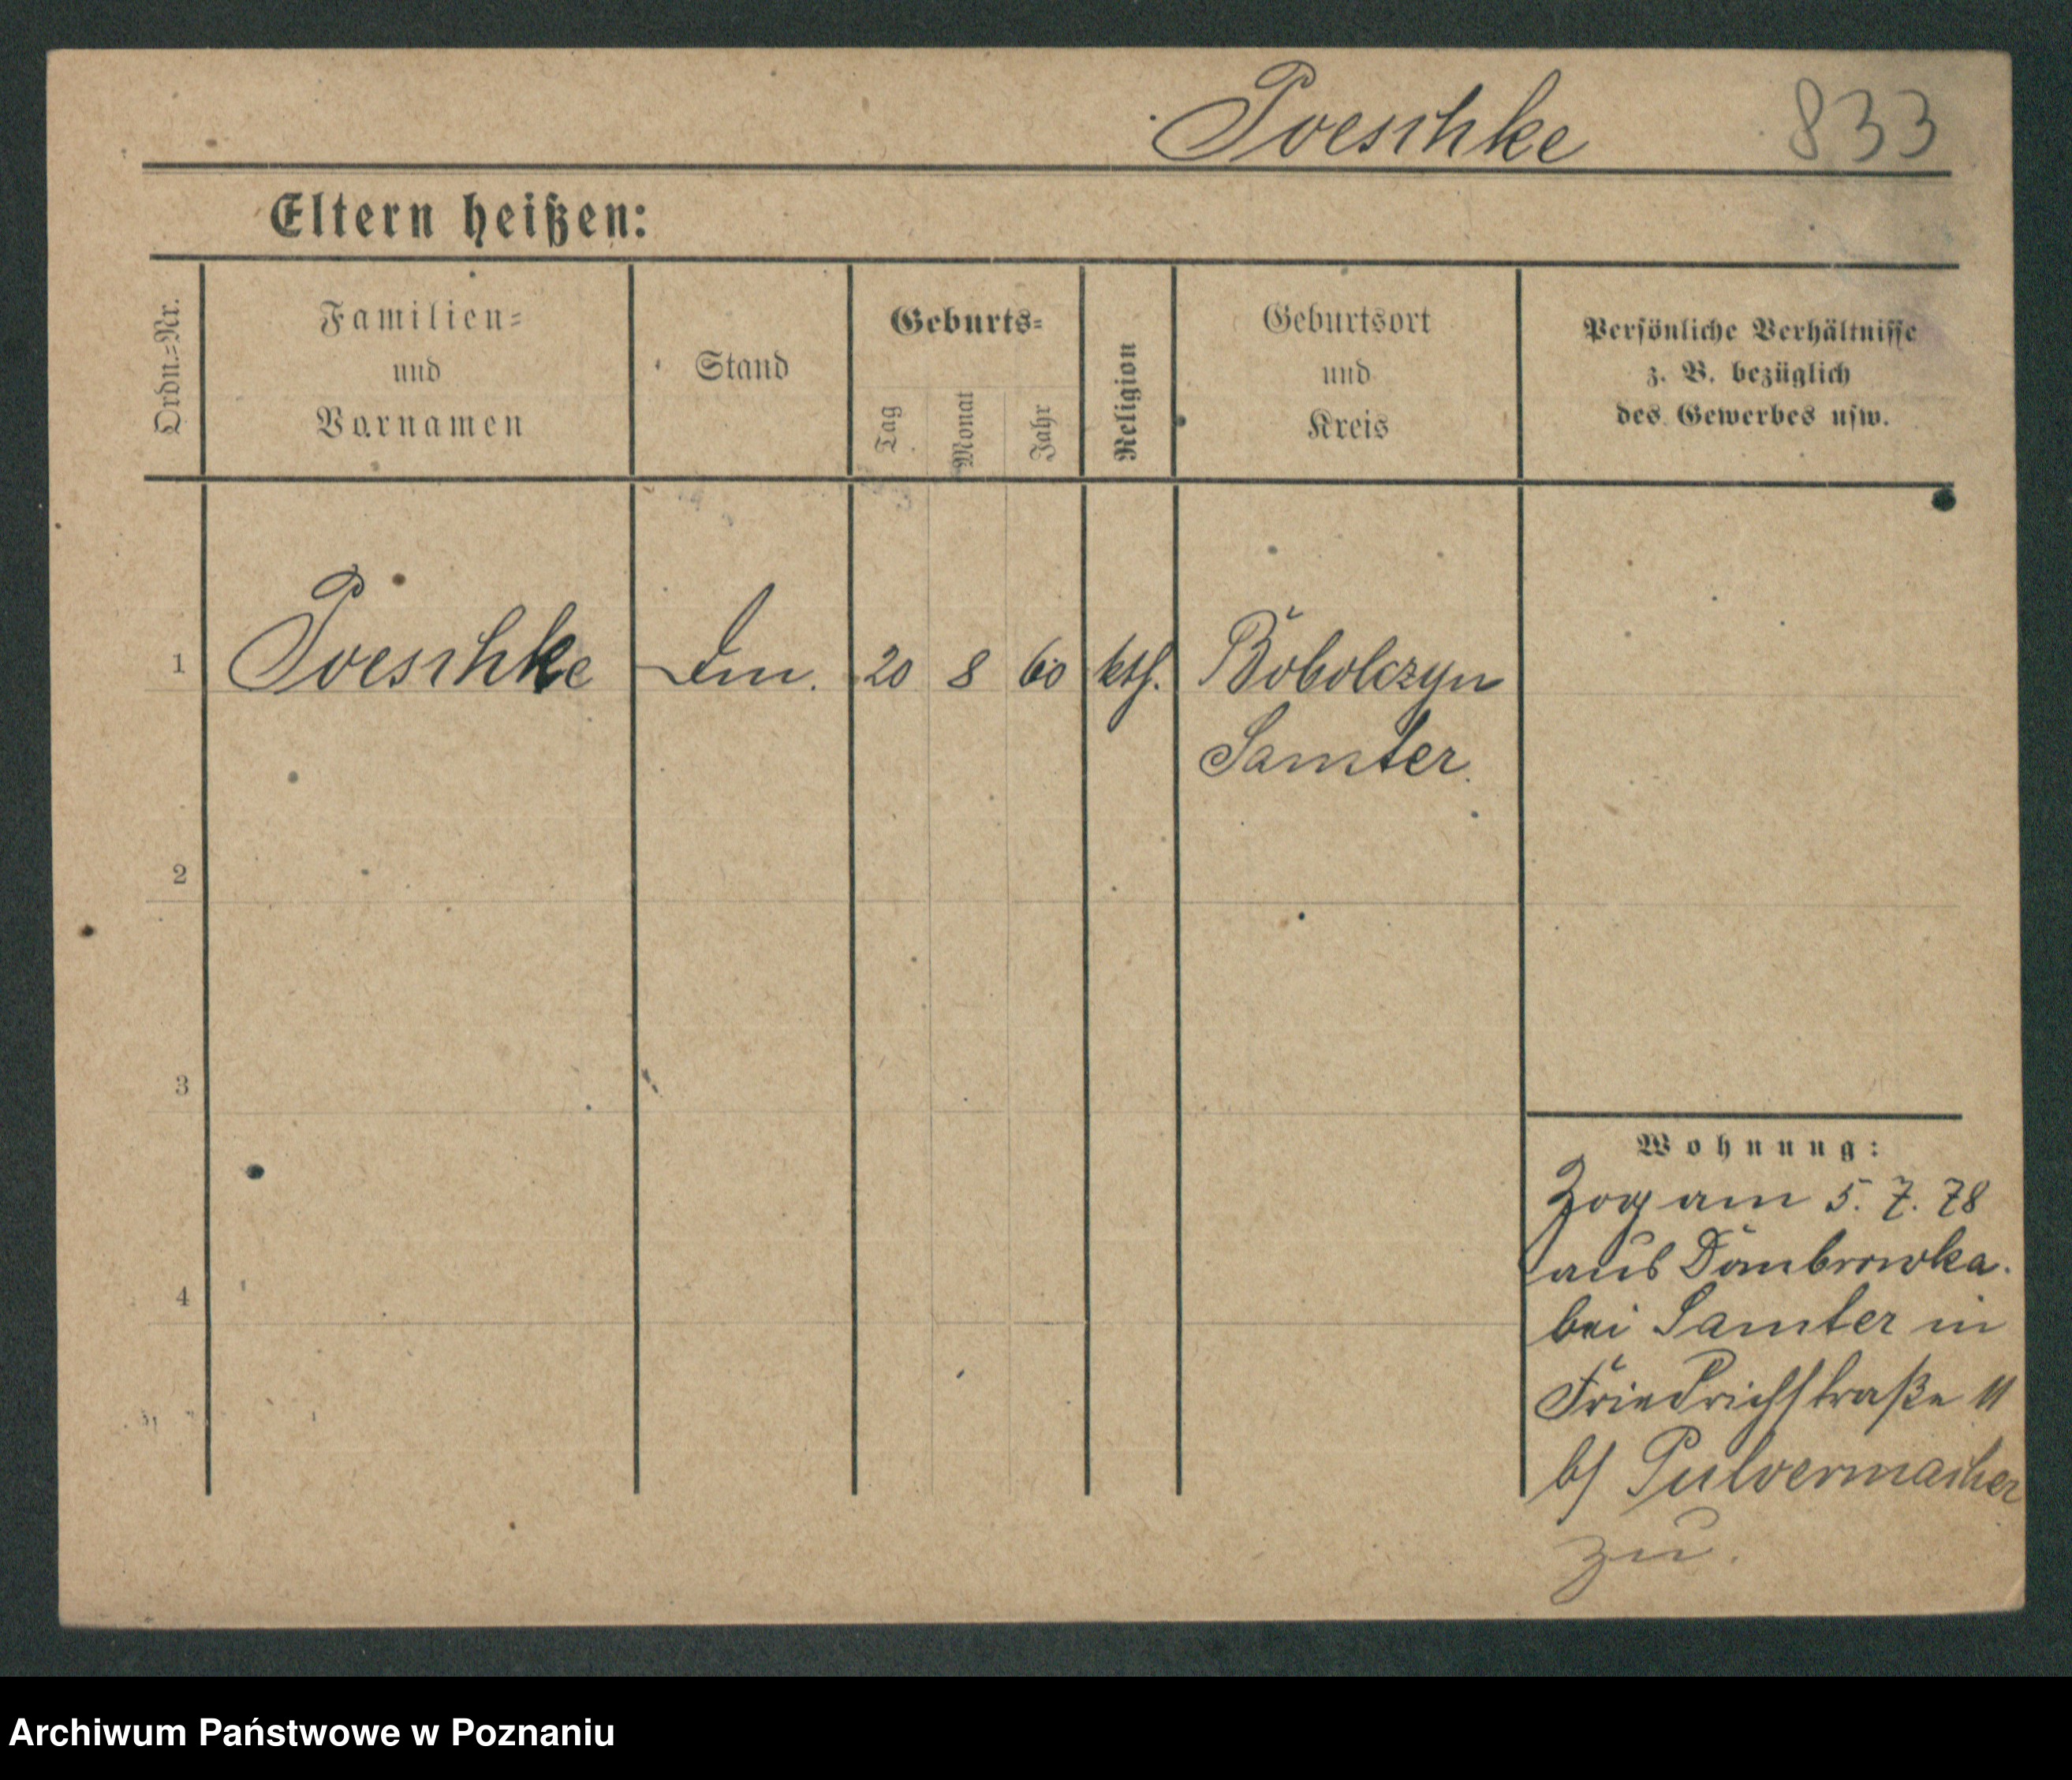 Poeschke 833
Eltern heißen:
Ordn.-Nr.
Familien-
und
Vornamen
Stand
Geburts-
Tag
Monat
Jahr
Religion
Geburtsort
und
Kreis
Persönliche Verhältnisse
z. B. bezüglich
des Gewerbes usw.
1 Poeschke 20 8 60 kth. Bobolczyn
Samter.
2
3
4
Wohnung:
Zog am 5. 7. 78
aus Dombrowka.
bei Samter in
Friedrichstraße 11
b/ Pulvermacher
zu.
Archiwum Państwowe w Poznaniu